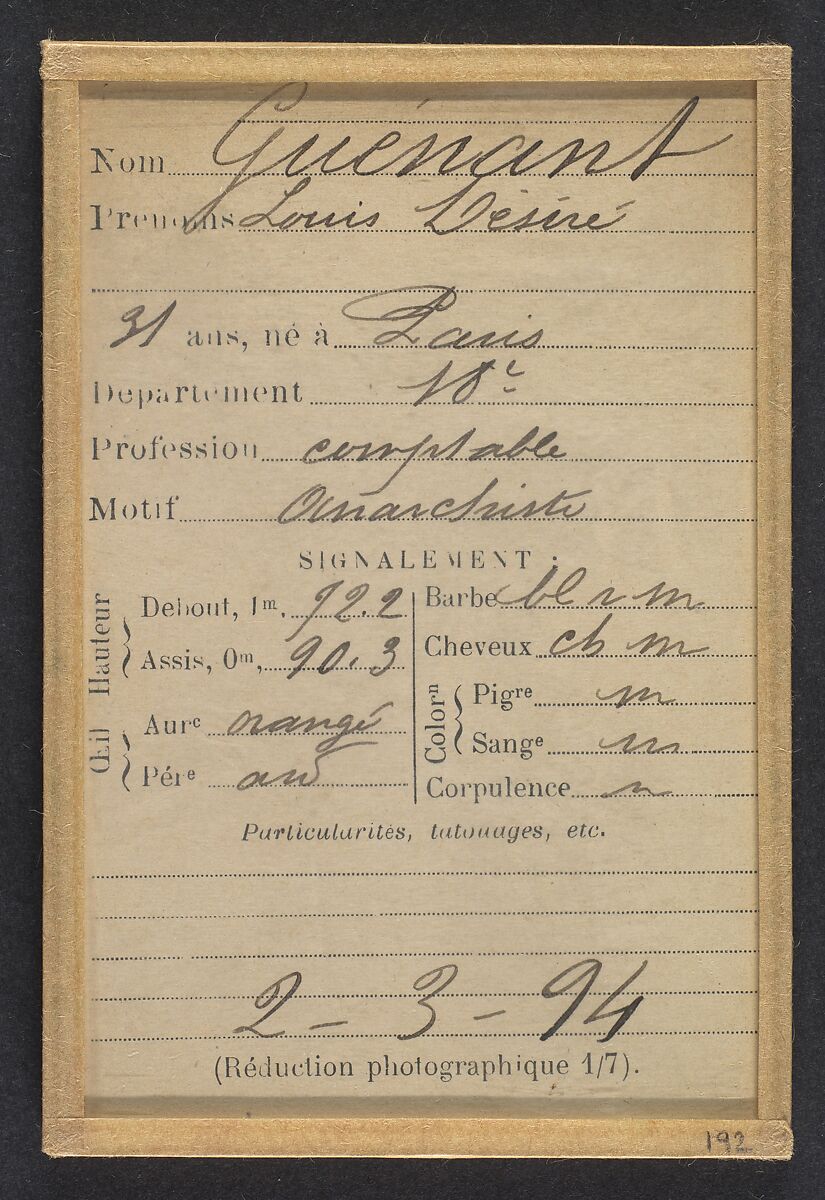 Nom Guénant
Prénoms Louis Désiré
31 ans, né à Paris
Département 18e
Profession comptable
Motif anarchiste
SIGNALEMENT :
Hauteur
Debout, 1m, 72.2
Assis, 0m, 90.3
Œil
Aurc orangé
Pére
Barbe bl r m
Cheveux ch m
Colorn
Pigre m
Sange m
Corpulence
Particularités, tatouages, etc.
2 - 3 - 94
(Réduction photographique 1/7).
192